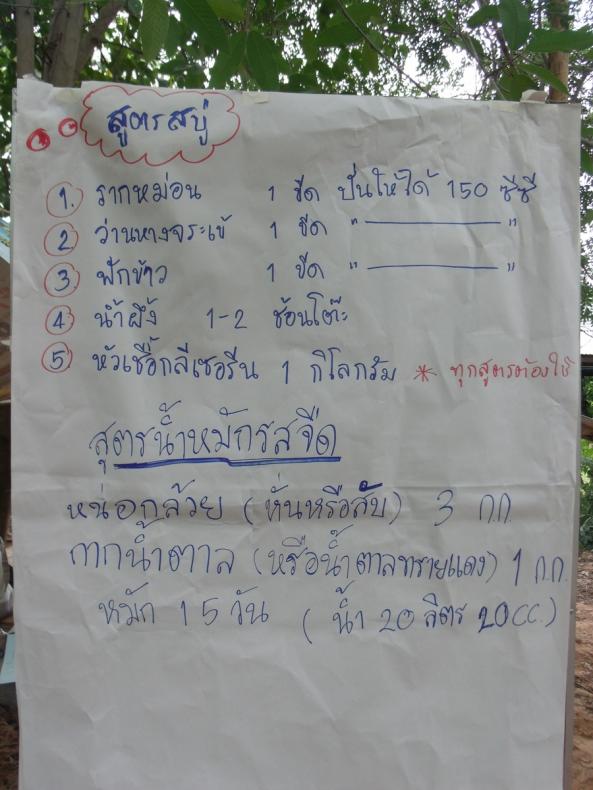 สูตรสบู่
1. รากหม่อน 1 ขีด ปั่นให้ได้ 150 ซีซี
2 ว่านหางจระเข้ 1 ขีด " ———— "
3 ฟักข้าว 1 ขีด " ———— "
4 น้ำผึ้ง 1-2 ช้อนโต๊ะ
5 หัวเชื้อกลีเซอรีน 1 กิโลกรัม * ทุกสูตรต้องใช้
สุตรน้ำหมักรสจืด
หน่อกล้วย (หั่นหรือสับ) 3 ก.ก.
กากน้ำตาล (หรือน้ำตาลทรายแดง) 1 ก.ก.
หมัก 15 วัน (น้ำ 20 ลิตร 20CC.)